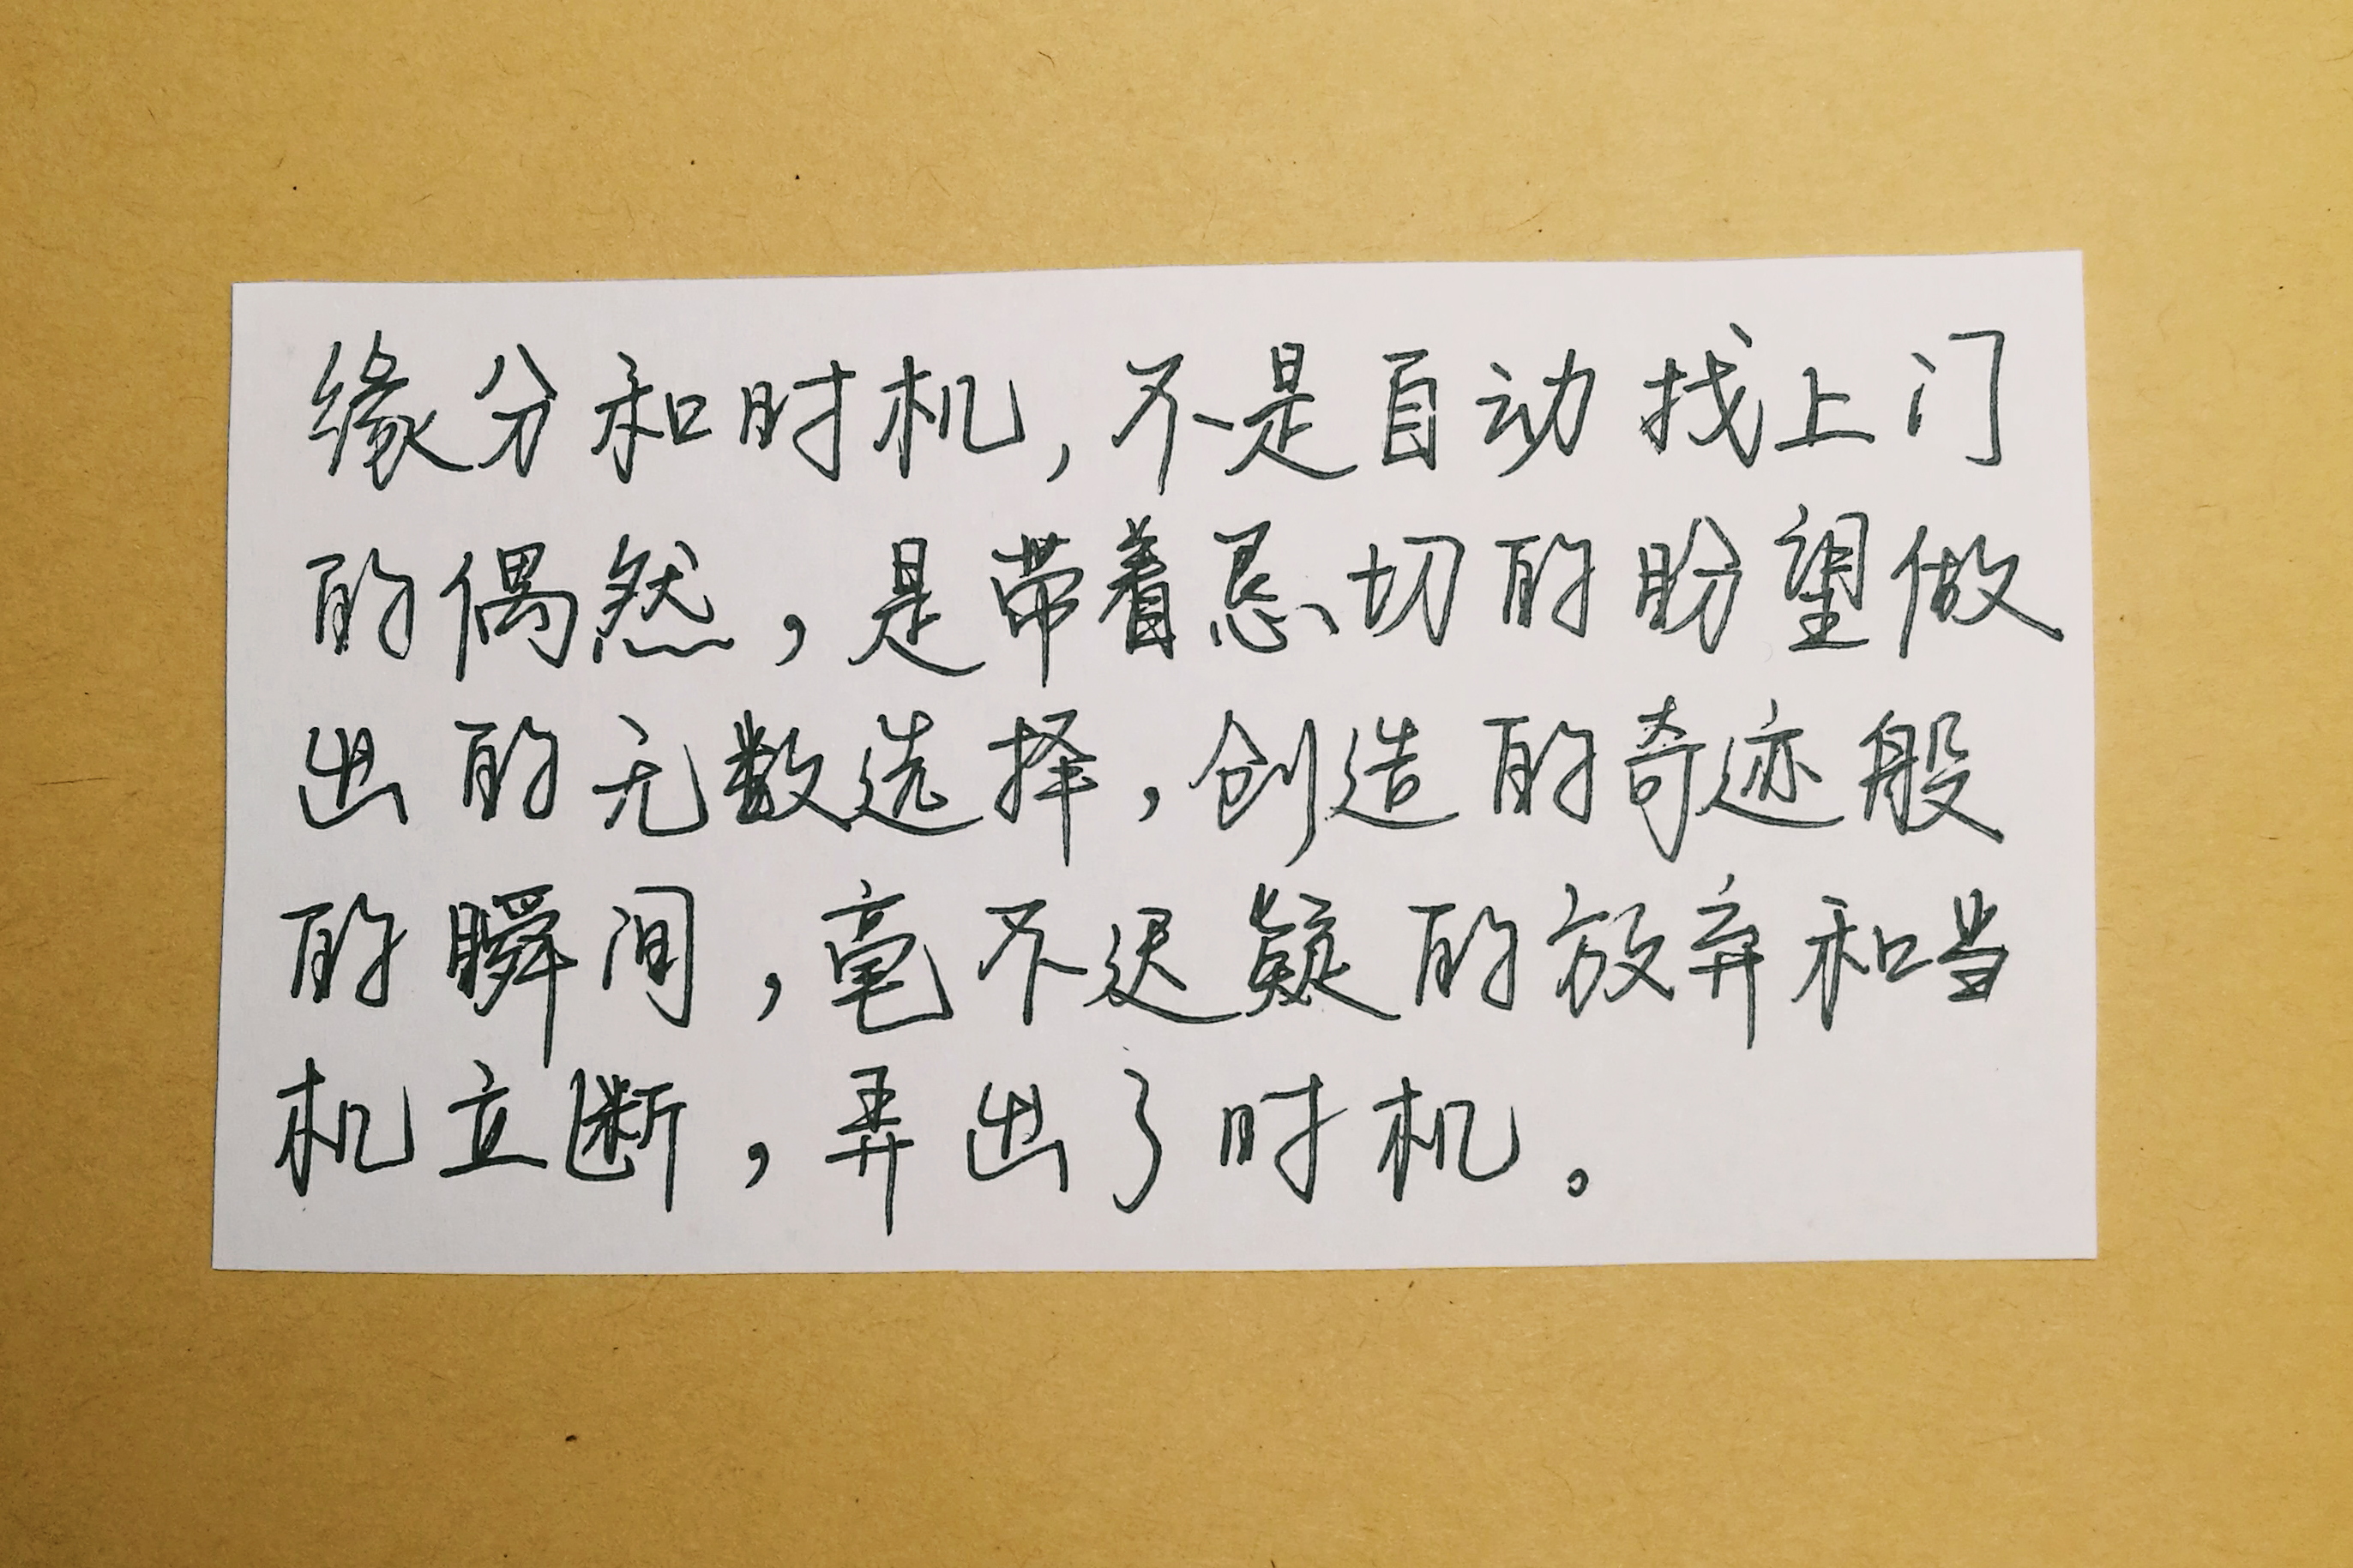 缘分和时机,不是自动找上门
的偶然,是带着恳切的盼望做
出的无数选择,创造的奇迹般
的瞬间,毫不迟疑的放弃和当
机立断,弄出了时机。